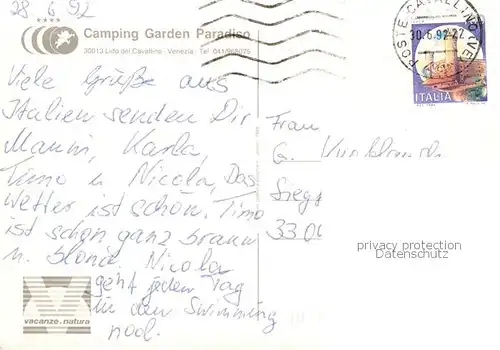 28 6 92
Camping Garden Paradiso
30013 Lido del Cavallino - Venezia - Tel. 041/968075
POSTE CAVALLINO (VE)
30.6.92-22
ITALIA
Viele Grüße aus
Italien senden Dir
Manni, Karla,
Timo u. Nicola, Das
Wetter ist schön. Timo
ist schon ganz braun
u. blond. Nicola
geht jeden Tag
in den Swimming
pool.
Frau
G.
Siegs
330
privacy protection
vacanze.natura